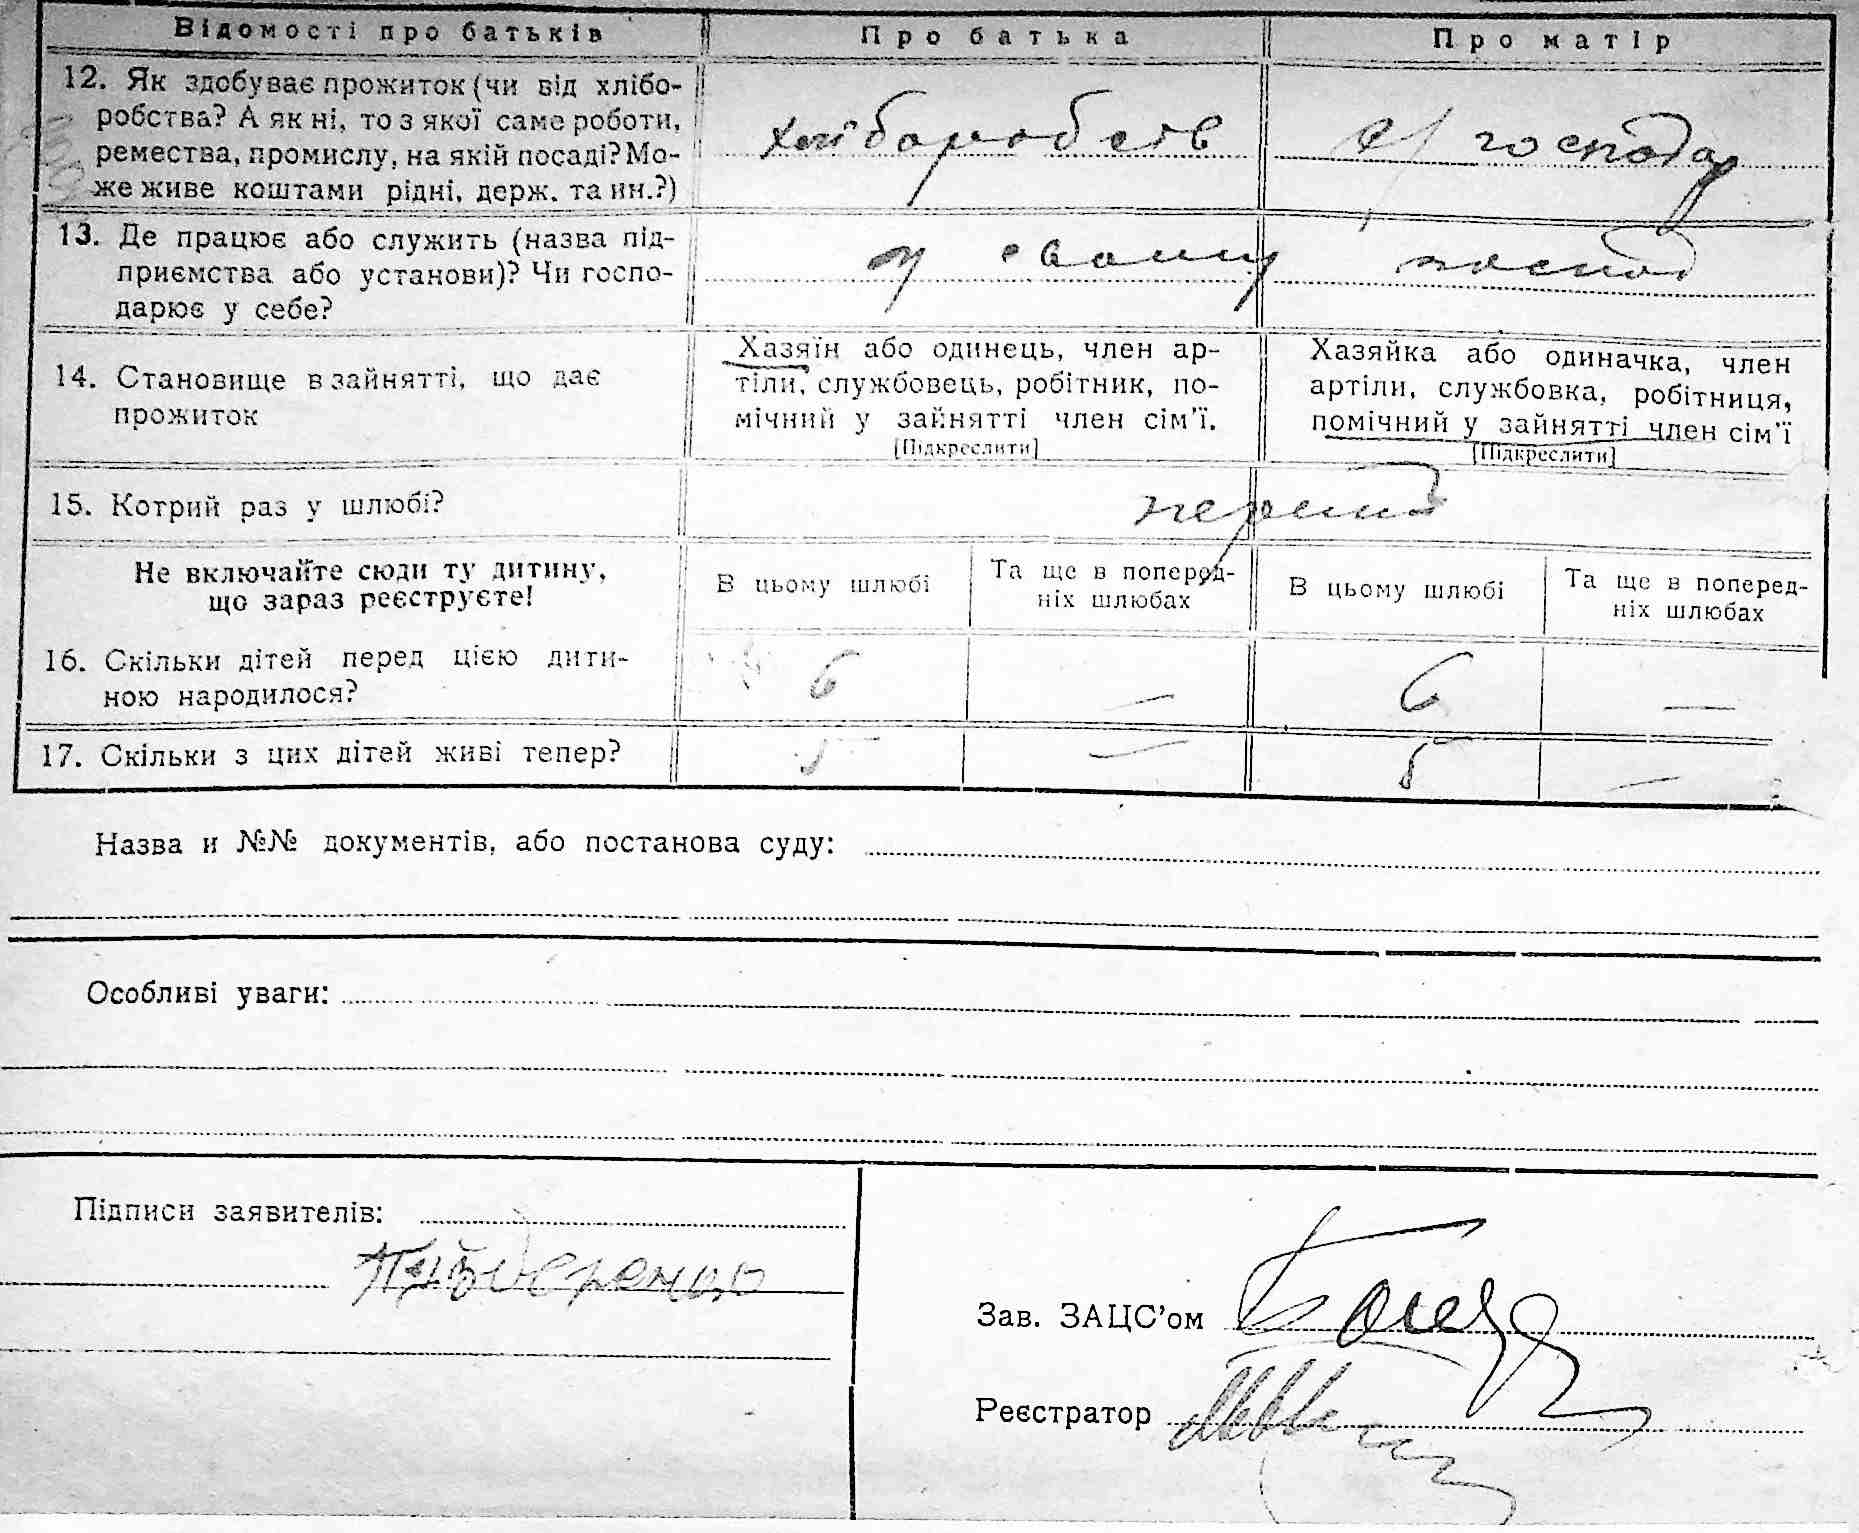 Відомості про батьків Про батька Про матір
12. Як здобуває прожиток (чи від хлібо-
робства? А як ні, то з якої саме роботи,
ремества, промислу, на якій посаді? Мо-
же живе коштами рідні, держ. та ин.?)
хліборобств
господар
13. Де працює або служить (назва під-
приємства або установи)? Чи госпо-
дарює у себе?
у свому господ
14. Становище в зайнятті, що дає
прожиток
Хазяїн або одинець, член ар-
тіли, службовець, робітник, по-
мічний у зайнятті член сім'ї.
[Підкреслити]
Хазяйка або одиначка, член
артіли, службовка, робітниця,
помічний у зайнятті член сім'ї
[Підкреслити]
15. Котрий раз у шлюбі?
перший
Не включайте сюди ту дитину,
що зараз реєструєте!
В цьому шлюбі
Та ще в поперед-
ніх шлюбах
В цьому шлюбі
Та ще в поперед-
ніх шлюбах
16. Скільки дітей перед цією дити-
ною народилося?
6 — 6 —
17. Скільки з цих дітей живі тепер?
5 — 5 —
Назва и №№ документів, або постанова суду:
Особливі уваги:
Підписи заявителів:
Зав. ЗАЦС'ом
Реєстратор